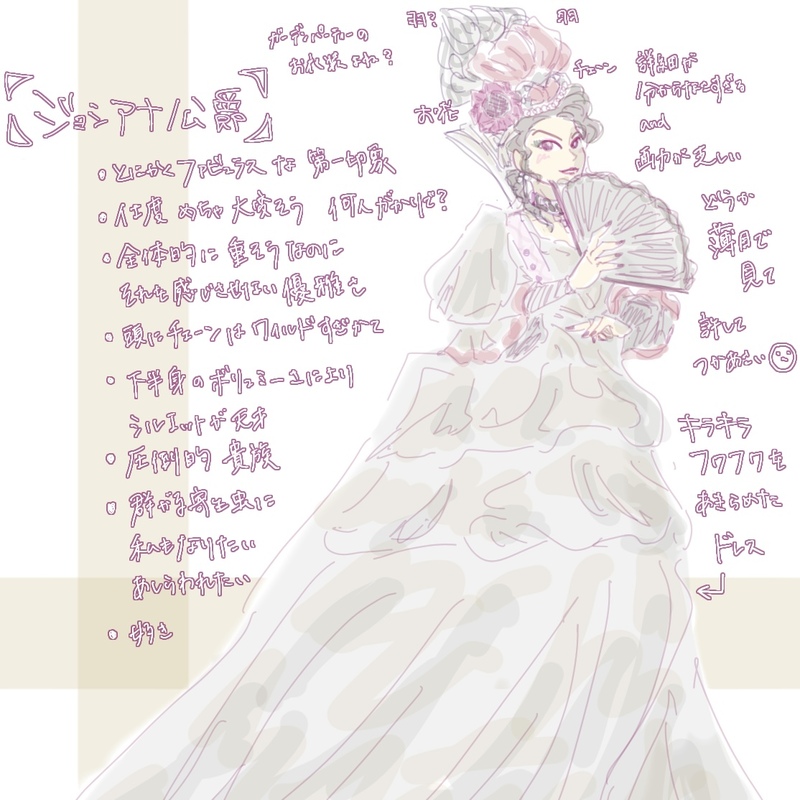 ガーデンパーティーの
お衣装よね?
羽?
羽
チェーン
お花
【ジョシアナ公爵】
・とにかくファビュラスな 第一印象
・仕度 めちゃ大変そう 何人がかりで?
・全体的に重そうなのに
それを感じさせない優雅さ
・頭にチェーンはワイルドすぎかて
・下半身のボリューミーさにより
シルエットが天才
・圧倒的 貴族
・群がる寄生虫に
私もなりたい
あしらわれたい
・好き
詳細が
分からなすぎる
and
画力が乏しい
どうか
薄目で
見て
許して
つかあさい
キラキラ
フワフワを
あきらめた
ドレス